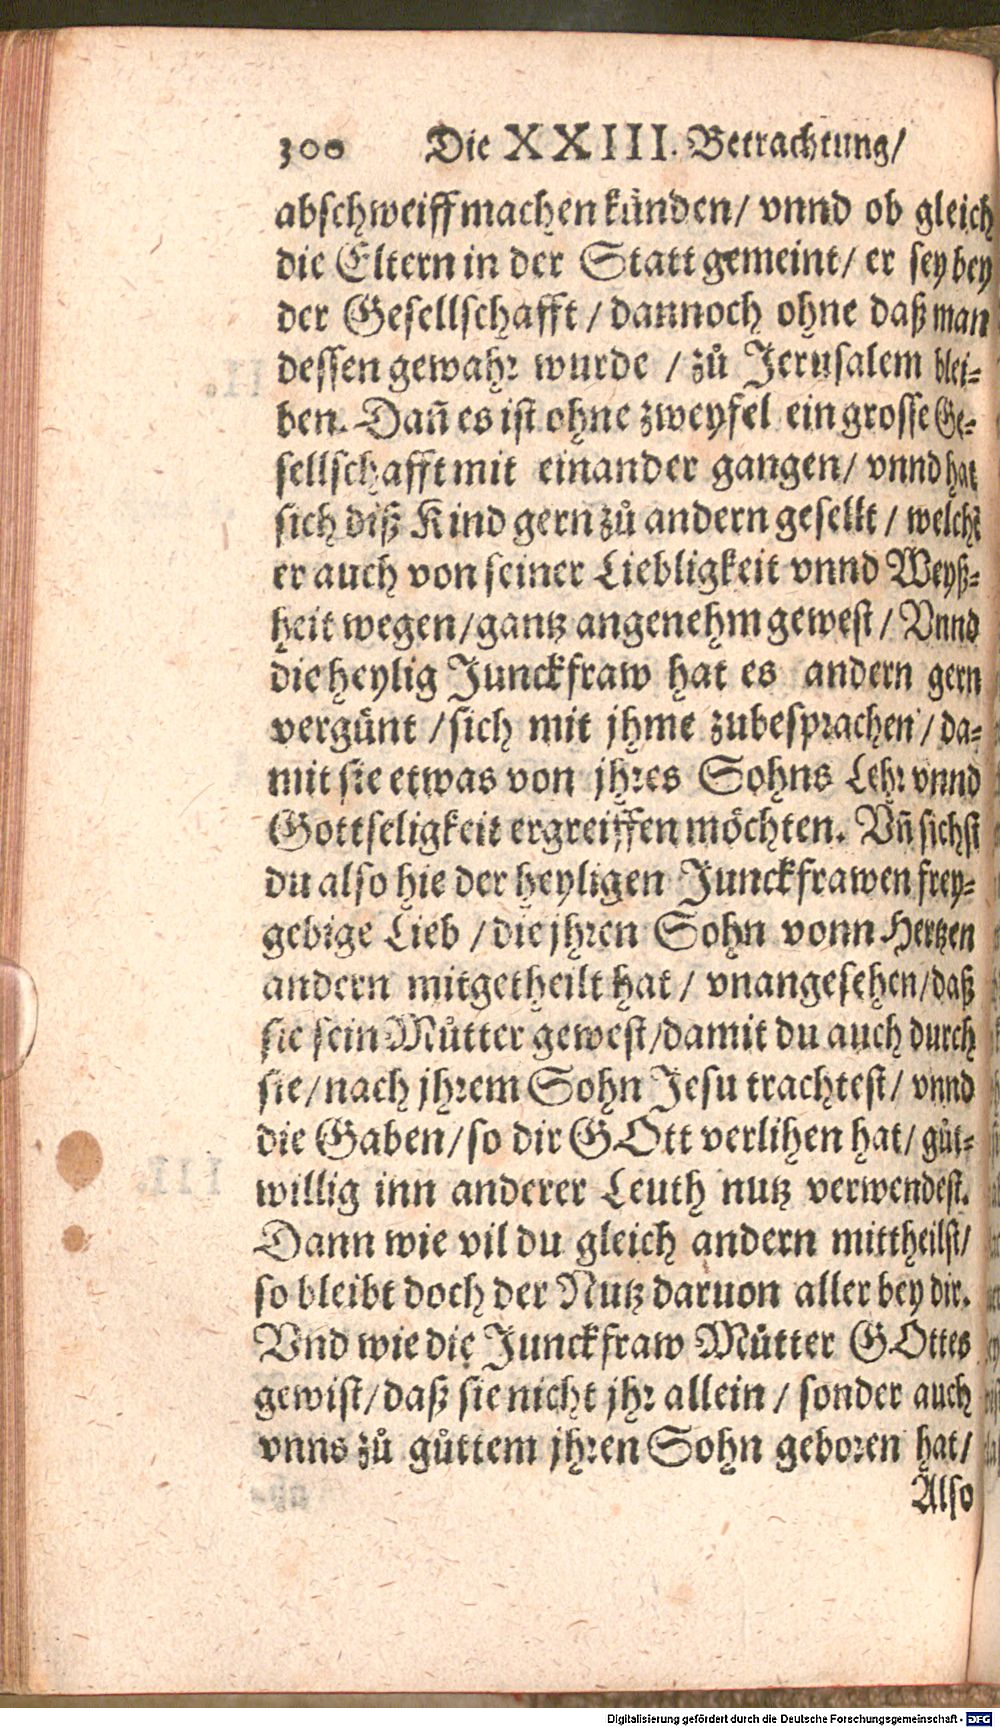 300 Die XXIII. Betrachtung/
abschweiff machen künden/ vnnd ob gleich
die Eltern in der Statt gemeint/ er sey bey
der Gesellschafft / dannoch ohne daß man
dessen gewahr wurde / zů Jerusalem blei-
ben. Dañ es ist ohne zweyfel ein grosse Ge-
sellschafft mit einander gangen/ vnnd hat
sich diß Kind gern zů andern gesellt / welchē
er auch von seiner Liebligkeit vnnd Weyß-
heit wegen/ gantz angenehm gewest / Vnnd
die heylig Junckfraw hat es andern gern
vergünt / sich mit jhme zubesprachen / da-
mit sie etwas von jhres Sohns Lehr vnnd
Gottseligkeit ergreiffen möchten. Vñ sichst
du also hie der heyligen Junckfrawen frey-
gebige Lieb / die jhren Sohn vonn Hertzen
andern mitgetheilt hat / vnangesehen/ daß
sie sein Můtter gewest/ damit du auch durch
sie/ nach jhrem Sohn Jesu trachtest/ vnnd
die Gaben/ so dir GOtt verlihen hat/ gůt-
willig inn anderer Leuth nutz verwendest.
Dann wie vil du gleich andern mittheilst/
so bleibt doch der Nutz daruon aller bey dir.
Vnd wie die Junckfraw Můtter GOttes
gewist/ daß sie nicht jhr allein / sonder auch
vnns zů gůttem jhren Sohn geboren hat/
Also
Digitalisierung gefördert durch die Deutsche Forschungsgemeinschaft - DFG